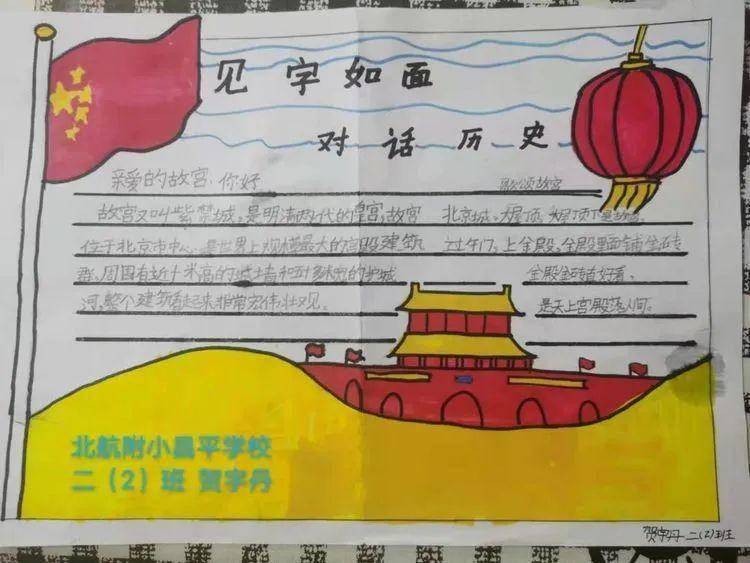 见字如面
对话历史
亲爱的故宫，你好
故宫又叫紫禁城，是明清两代的皇宫，故宫
位于北京市中心，是世界上规模最大的宫殿建筑
群，周围有近十米高的城墙和五十多米宽的护城
河，整个建筑看起来非常宏伟壮观。
歌颂故宫
北京城，大屋顶，大屋顶下是故宫。
过午门，上金殿，金殿里面铺金砖
金殿金砖真好看，
是天上宫殿落人间。
北航附小昌平学校
二（2）班 贺字丹
贺字丹 二(2)班